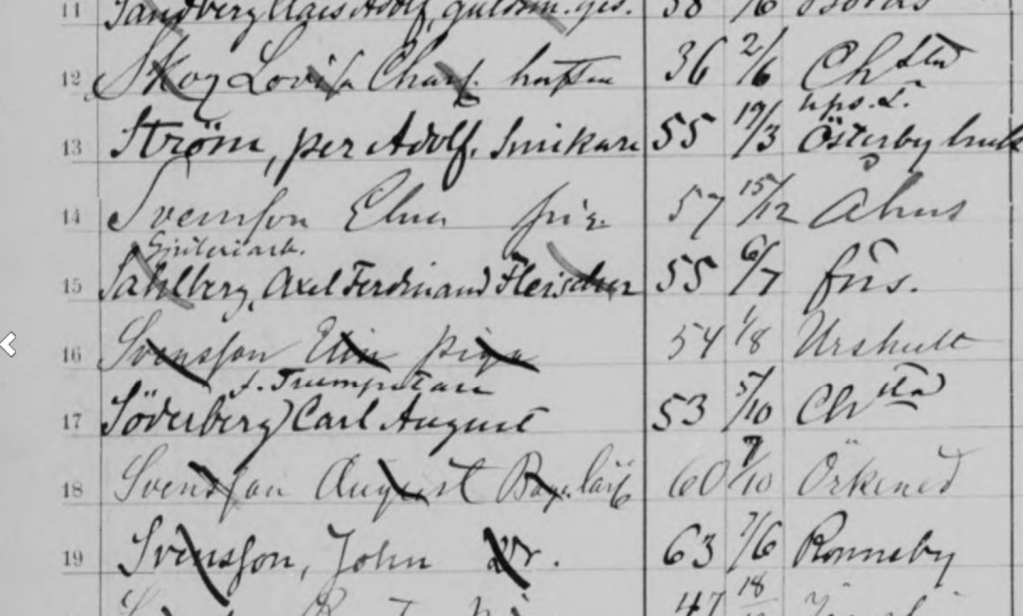 11 Sandberg Claës Adolf, guldsm. ges. 58 /6 Borås
12 Skog Lovisa Charl. 36 2/6 Chsta
19/ Ups. L.
13 Ström, Per Adolf, Snickare 55 /3 Österby bruk
14 Svensson Elna pig. 57 15/12 Åhus
15 Sahlberg, Axel Ferdinand Fleischer 55 6/7 förs.
16 Svensson Elin piga 54 1/8 Urshult
f. Trumpetare
17 Söderberg Carl August 53 5/10 Chsta
18 Svensson August 60 7/10 Örkened
19 Svensson, John Dr. 63 7/6 Ronneby
47 18